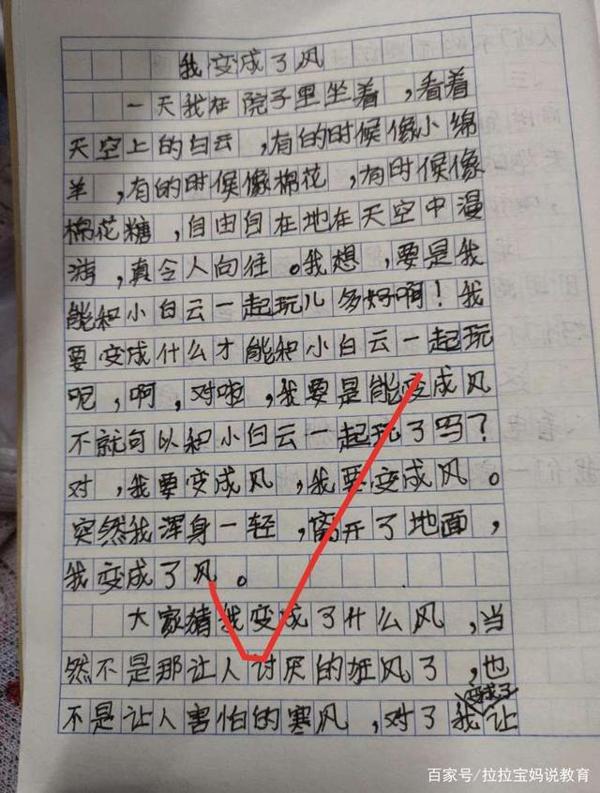 我变成了风
一天我在院子里坐着,看着
天空上的白云,有的时候像小绵
羊,有的时候像棉花,有时候像
棉花糖,自由自在地在天空中漫
游,真令人向往。我想,要是我
能和小白云一起玩儿多好啊!我
要变成什么才能和小白云一起玩
呢,啊,对啦,我要是能变成风
不就可以和小白云一起玩了吗?
对,我要变成风,我要变成风。
突然我浑身一轻,离开了地面,
我变成了风。
大家猜我变成了什么风,当
然不是那让人讨厌的狂风了,也
不是让人害怕的寒风,对了我让
百家号/拉拉宝妈说教育